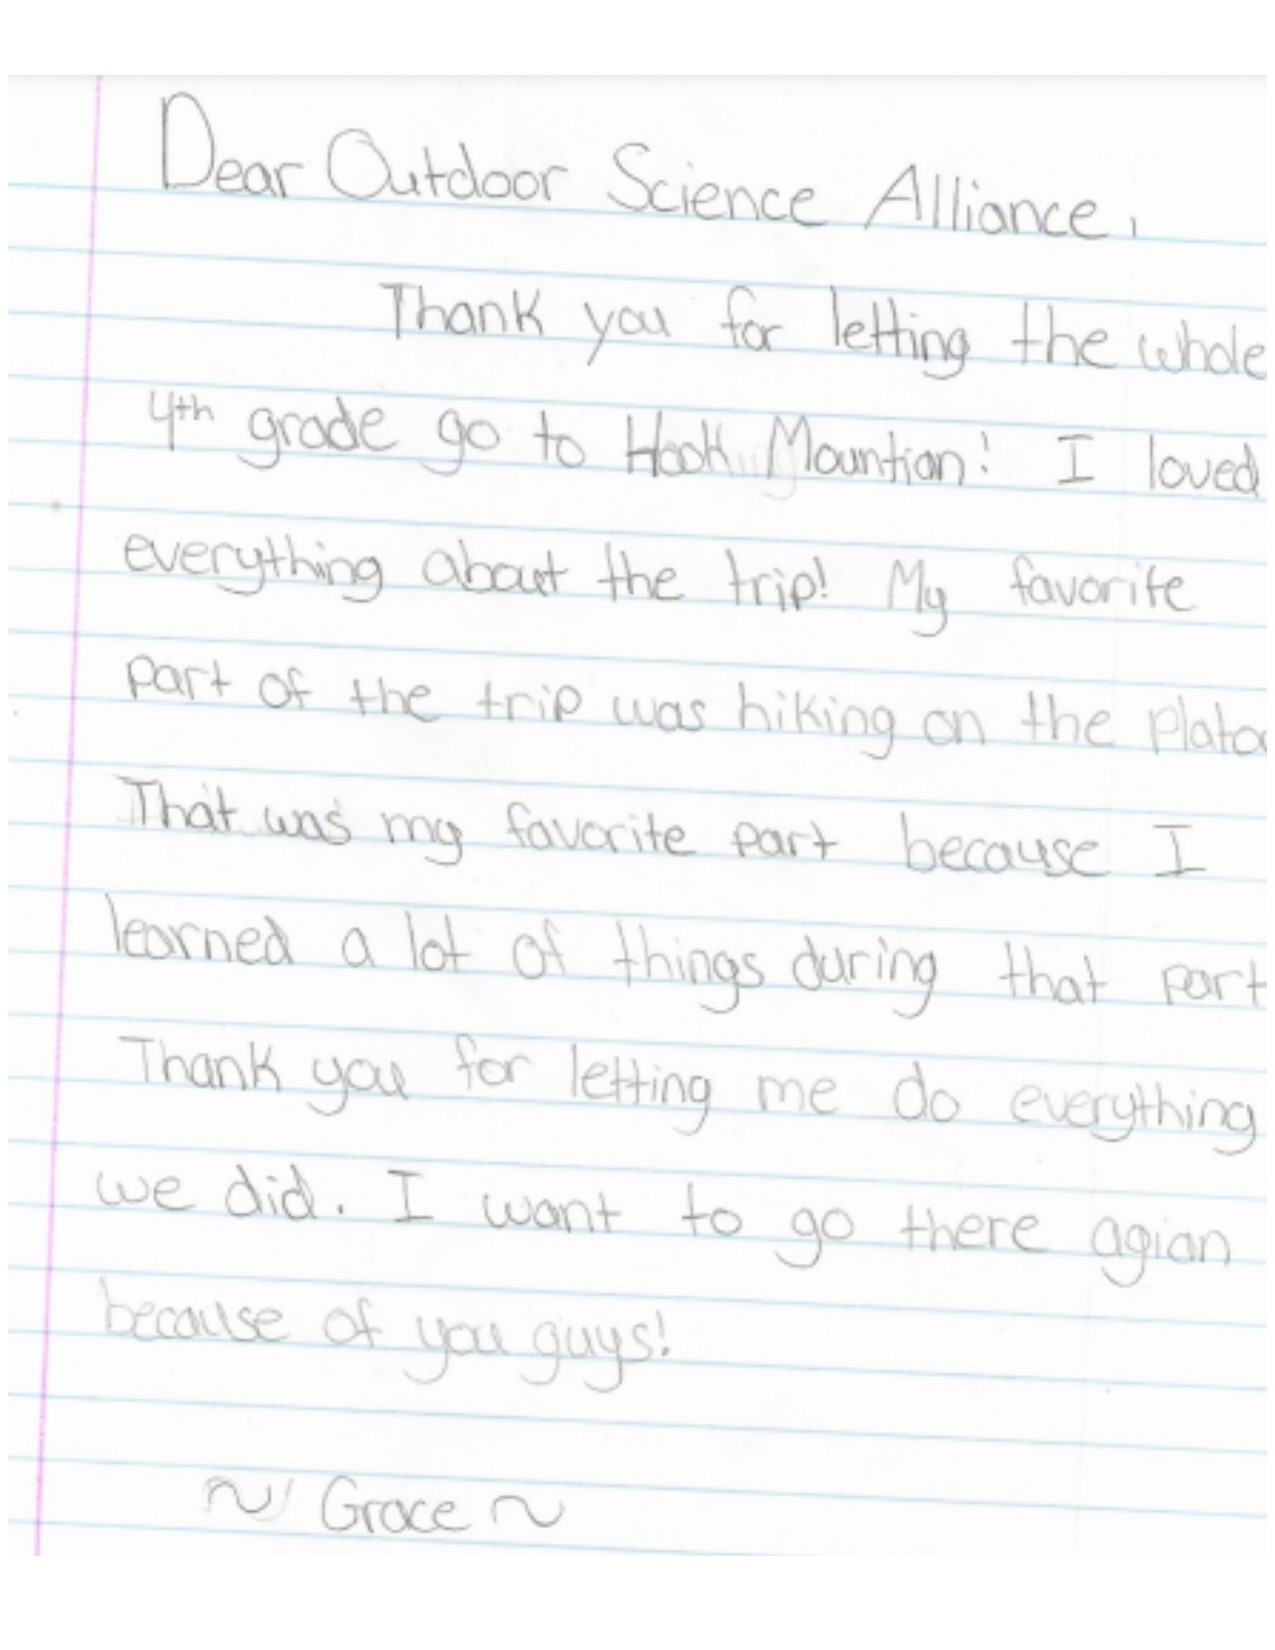 Dear Outdoor Science Alliance,
Thank you for letting the whole
4th grade go to Hook Mountian! I loved
everything about the trip! My favorite
part of the trip was hiking on the
That was my favorite part because I
learned a lot of things during that part
Thank you for letting me do everything
we did. I want to go there agian
because of you guys!
~ Grace ~